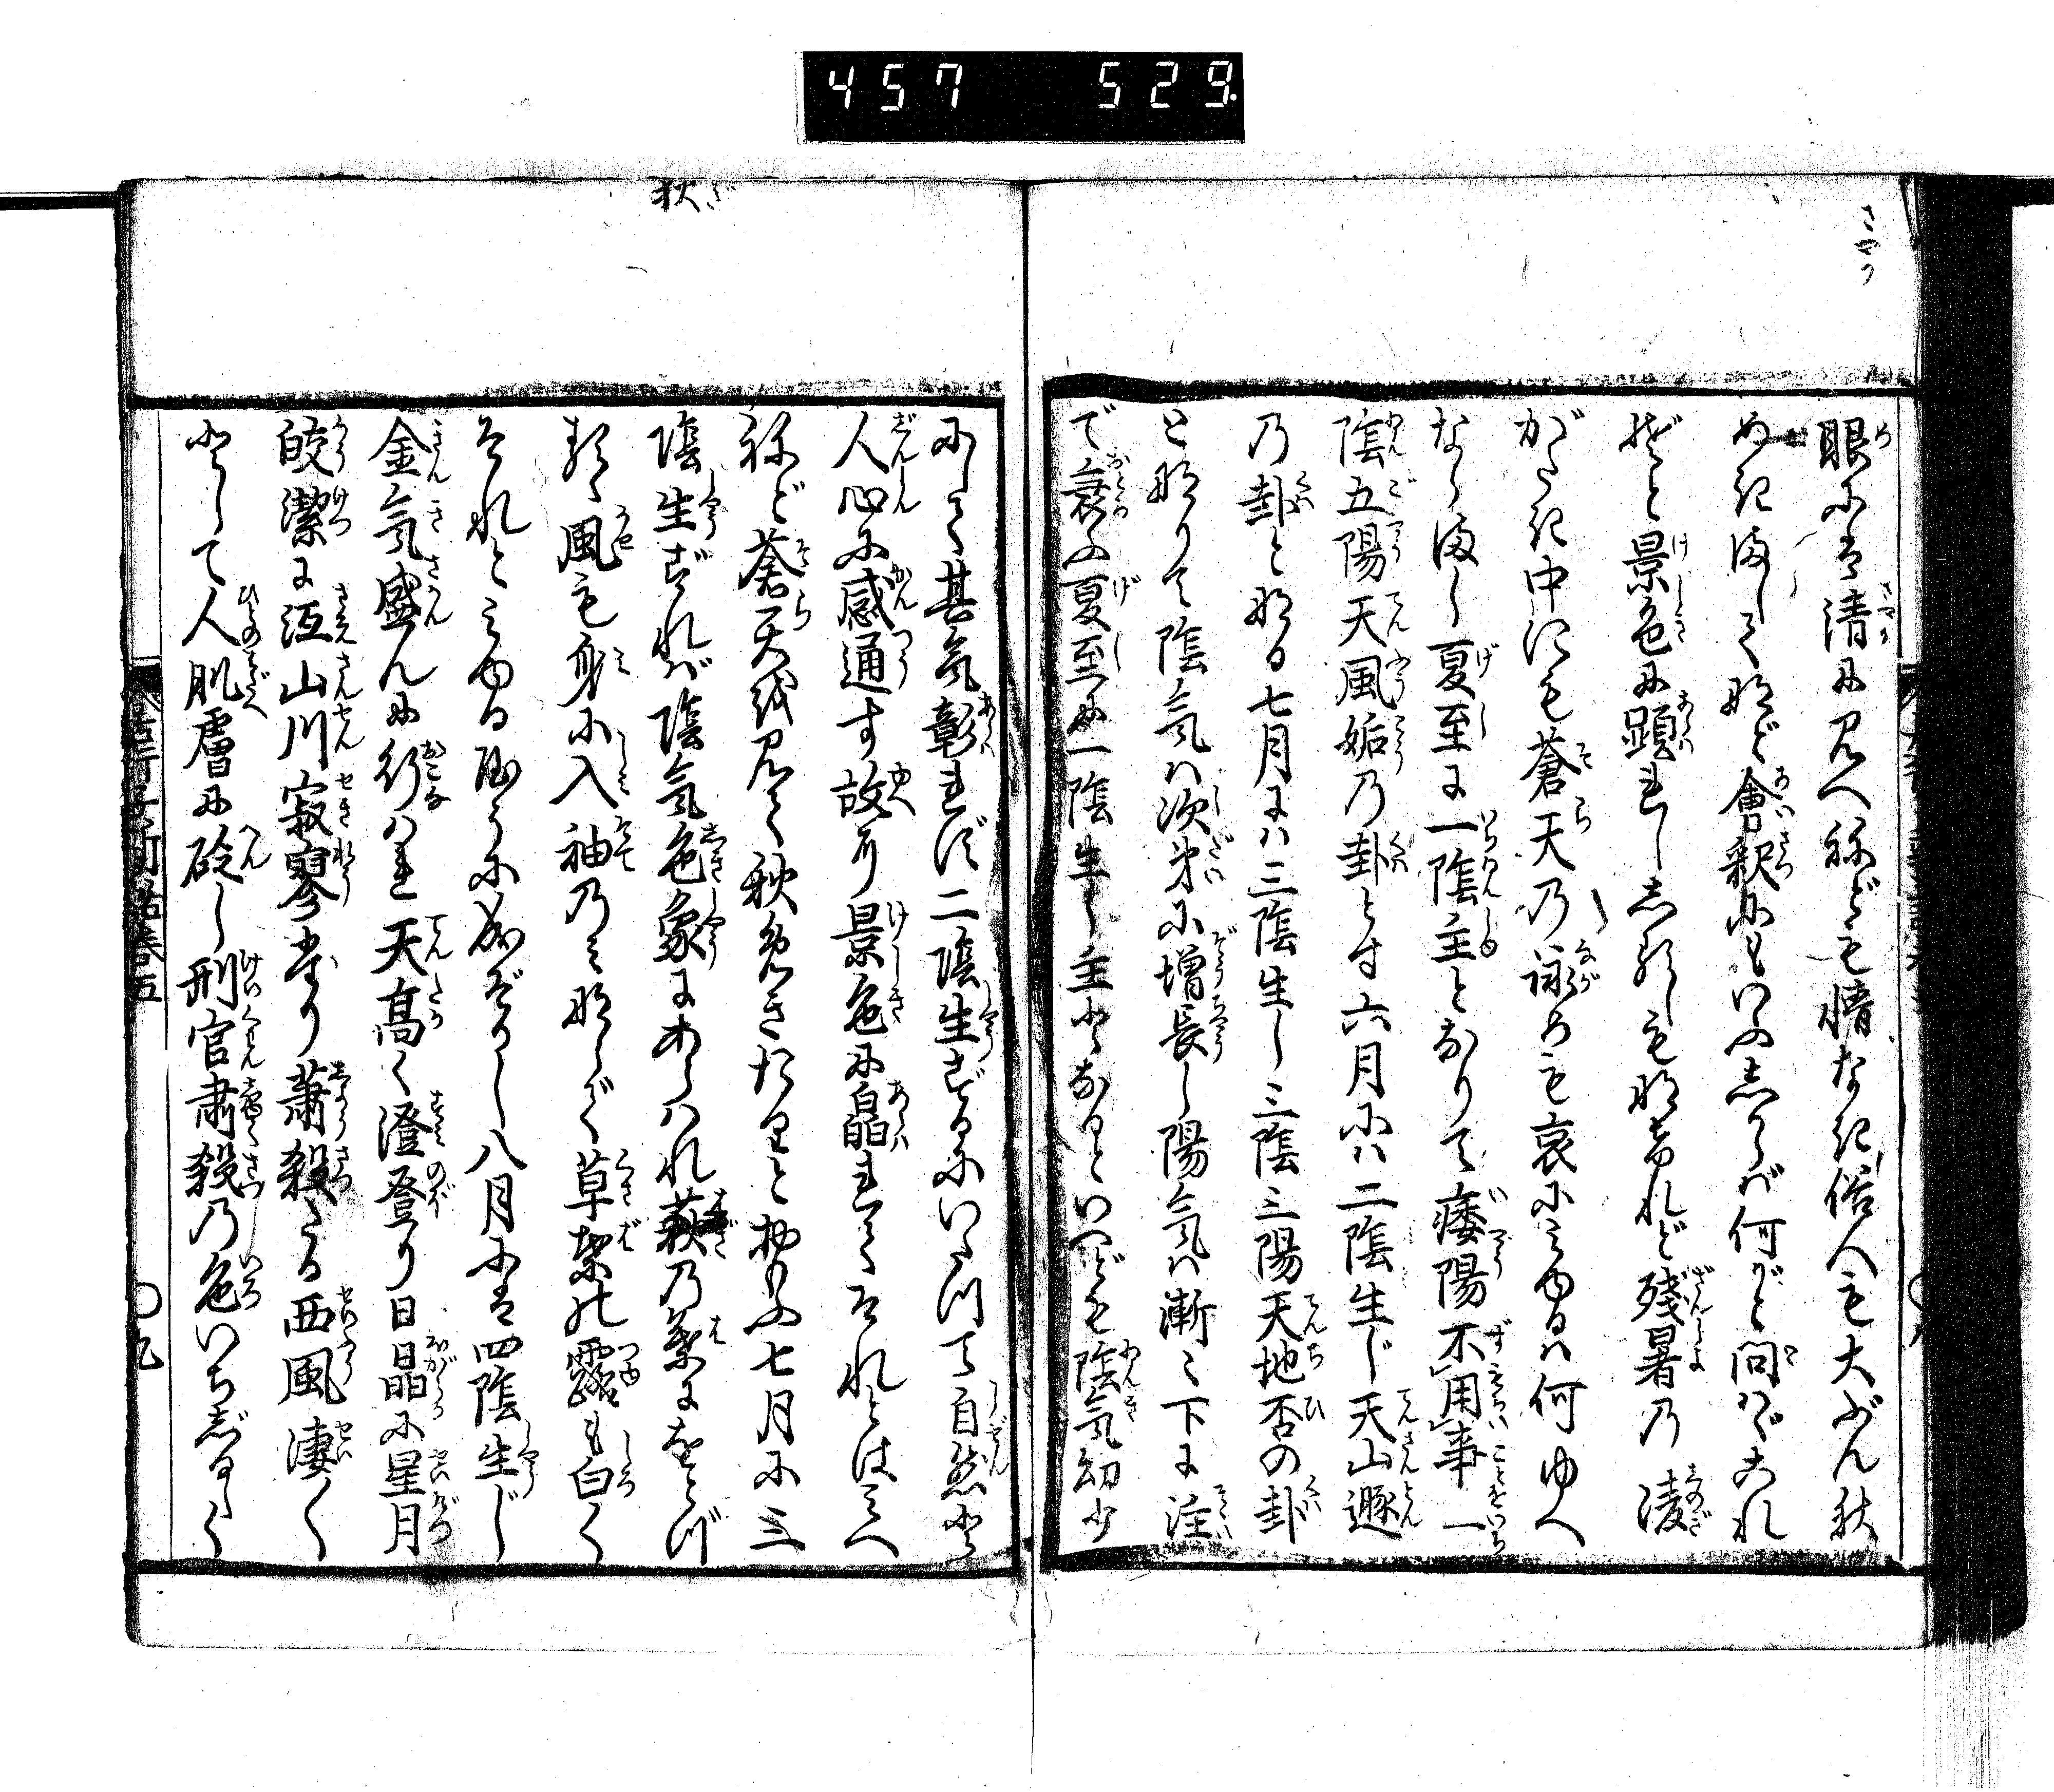 457 529.
さやう
眼には清に見へねども情なき俗人も大ぶん秋
めきましてなど會釈にもいふしからば何がと問へばあれ
ぞと景色に顕れししるしもなけれど残暑の凌
がたき中にも蒼天の詠めも哀にみゆるは何ゆへ
ならましと夏至に一陰主となりて痿陽不用事一
陰五陽天風姤の卦とす六月には二陰生じ天山遯
の卦となる七月には三陰生し三陰三陽天地否の卦
となりて陰気は次第に増長し陽気は漸々下に注
で衰ふ夏至に一陰生し主となるといへども陰気幼少
にして其気彰れず二陰生ずるにいたつて自然と
人心に感通す故に景色に晶れてそれとは見へ
ねど蒼天を見て秋めきたりと抑ふ七月に三
陰生ずれば陰気色象にあらはれ萩の葉にをとづ
るゝ風も身に入袖のみならで草葉の露も白く
それとみゆるやうに成ぞかし八月には四陰生じ
金気盛んに行はれ天高く澄登り日晶に星月
皎潔に冱山川寂寥たり蕭殺たる西風凄く
として人肌膚に砭し刑官粛殺の色いちじるく
荻
巻五
〇九